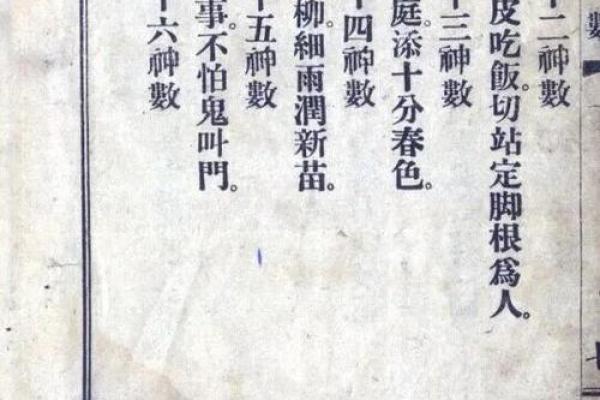 數
十二神數
皮吃飯。切站定脚根爲人。
十三神數
庭。添十分春色。
十四神數
柳。細雨潤新苗。
十五神數
事。不怕鬼叫門。
十六神數